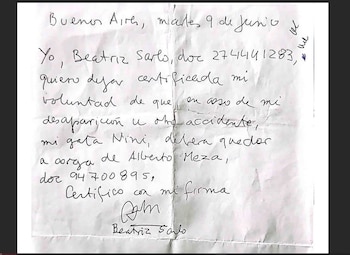 Buenos Aires, martes 9 de Junio
Yo, Beatriz Sarlo, doc 274441283,
quiero dejar certificada mi
voluntad de que en caso de mi
desaparición u otro accidente,
mi gata Nini, deberá quedar
a cargo de Alberto Meza,
doc 94700895.
Certifico con mi firma
Beatriz Sarlo